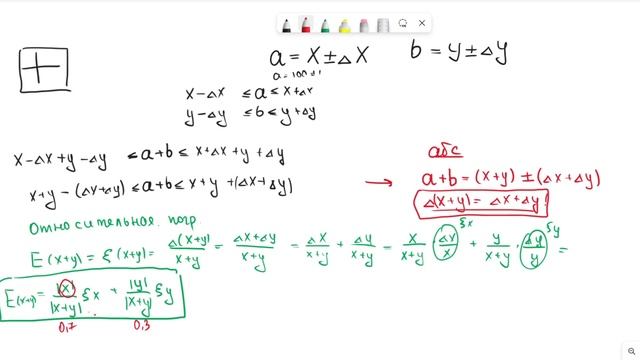 +
a = x ± Δx     b = y ± Δy
x − Δx ≤ a ≤ x + Δx
y − Δy ≤ b ≤ y + Δy
x − Δx + y − Δy ≤ a + b ≤ x + Δx + y + Δy
x + y − (Δx + Δy) ≤ a + b ≤ x + y + (Δx + Δy)
→
абс
a + b = (x + y) ± (Δx + Δy)
Δ(x + y) = Δx + Δy
Относительная погр.
E(x+y) = ξ(x+y) = Δ(x+y)/(x+y) = (Δx+Δy)/(x+y) = Δx/(x+y) + Δy/(x+y) = x/(x+y) · Δx/x + y/(x+y) · Δy/y =
ξx     ξy
E(x+y) = |x|/|x+y| ξx + |y|/|x+y| ξy
0,7     0,3